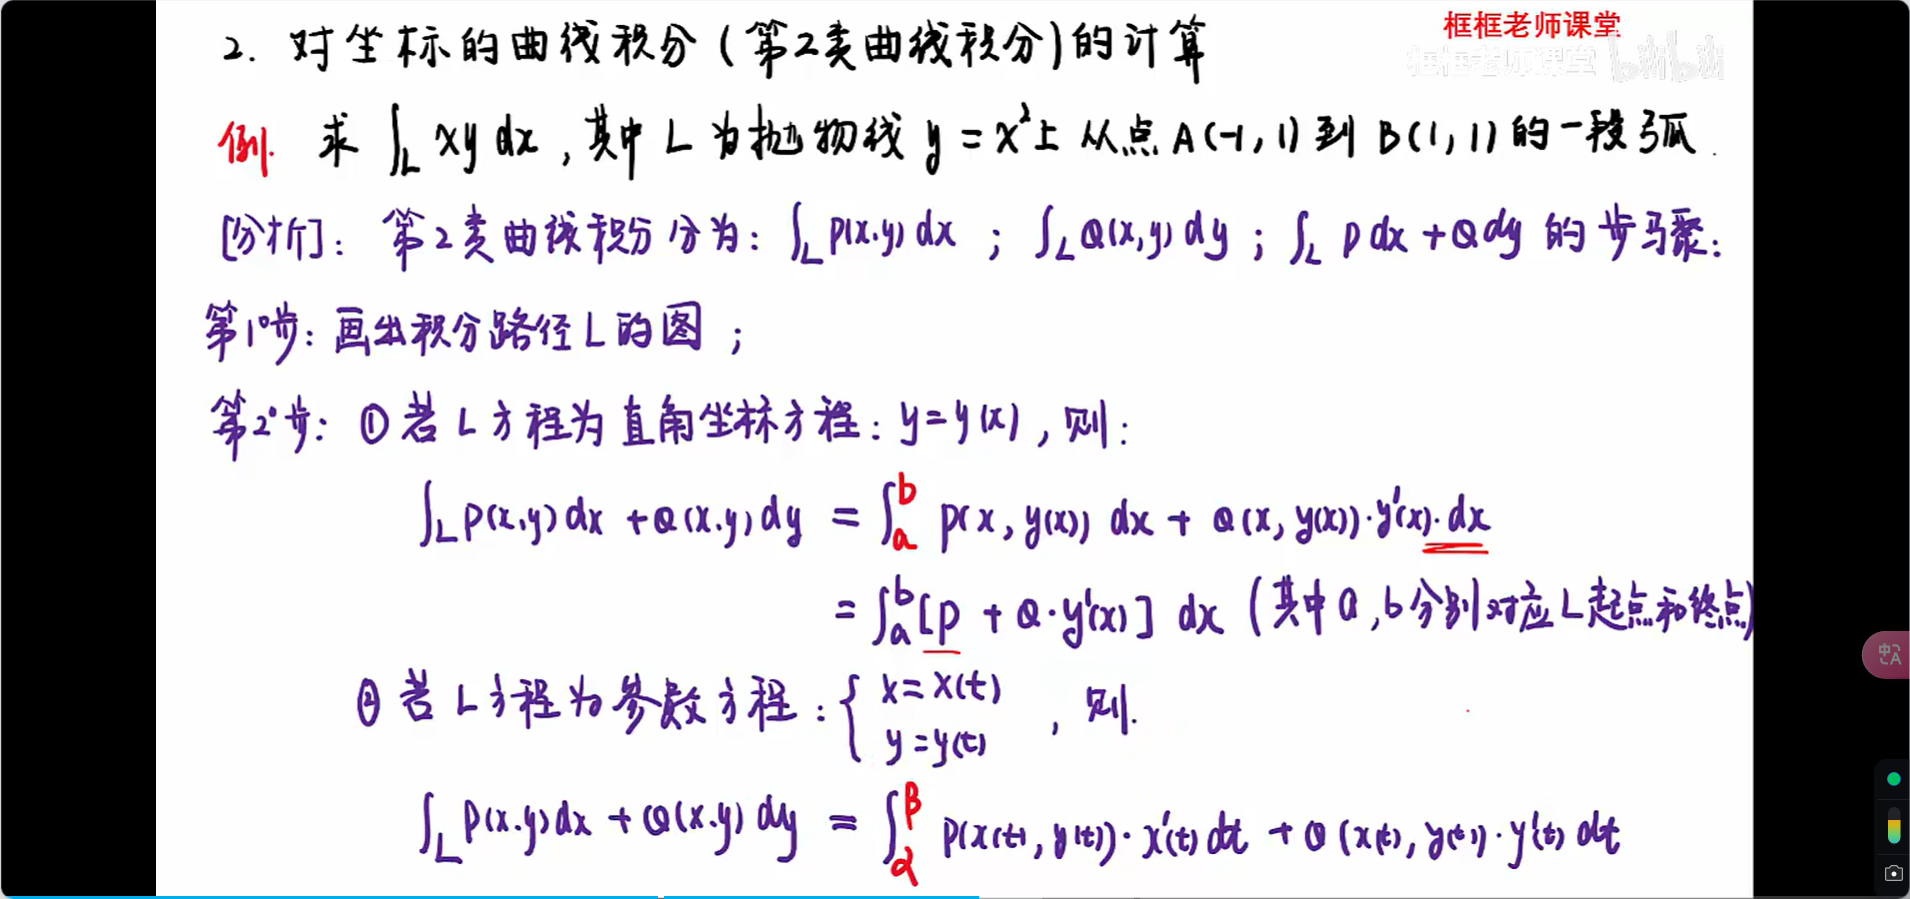 框框老师课堂
框框老师课堂 bilibili
2. 对坐标的曲线积分(第2类曲线积分)的计算
例. 求 ∫_L xy dx, 其中 L 为抛物线 y = x² 上从点 A(-1, 1) 到 B(1, 1) 的一段弧.
[分析]: 第2类曲线积分分为: ∫_L P(x.y) dx ; ∫_L Q(x,y) dy ; ∫_L P dx + Q dy 的步骤:
第1°步: 画出积分路径 L 的图 ;
第2°步: ① 若 L 方程为直角坐标方程: y = y(x), 则:
∫_L P(x.y) dx + Q(x.y) dy = ∫_a^b P(x, y(x)) dx + Q(x, y(x))·y'(x)·dx
= ∫_a^b [P + Q·y'(x)] dx (其中 a, b 分别对应 L 起点和终点)
② 若 L 方程为参数方程: { x = x(t)
y = y(t) , 则.
∫_L P(x.y) dx + Q(x.y) dy = ∫_α^β P(x(t), y(t))·x'(t) dt + Q(x(t), y(t))·y'(t) dt
中A